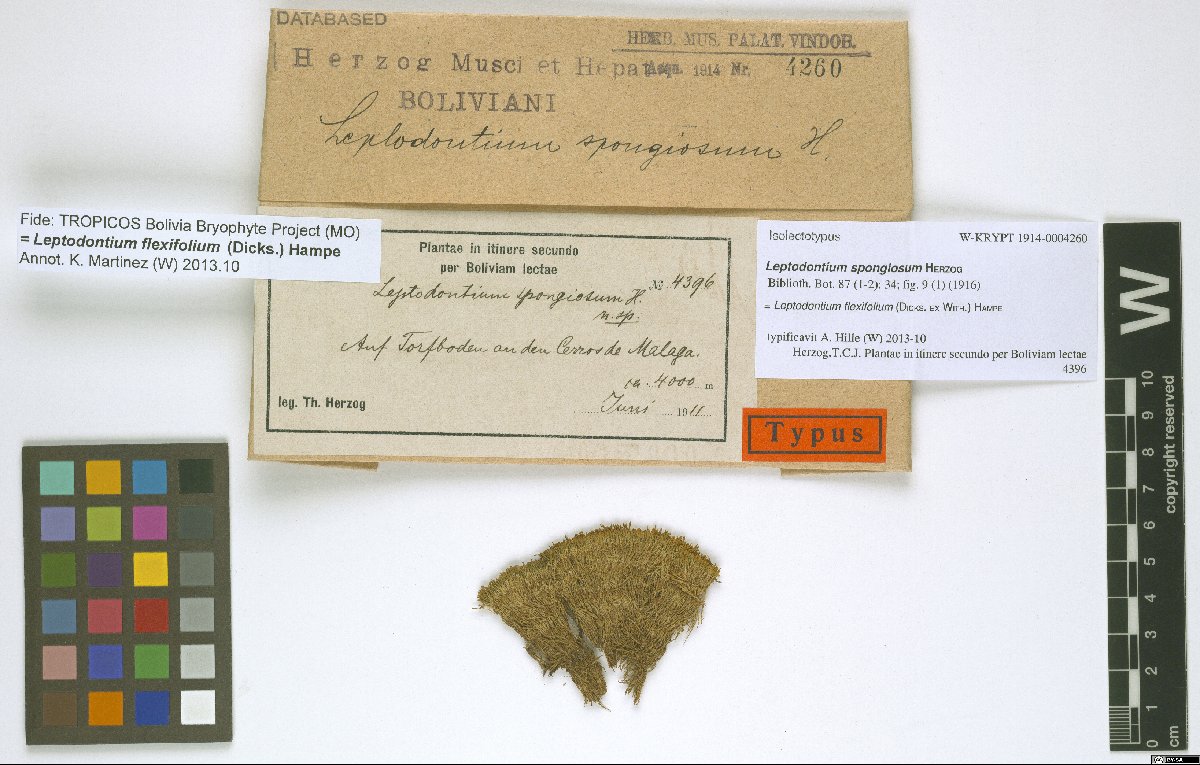 DATABASED
HERB. MUS. PALAT. VINDOB.
Herzog Musci et Hepat
Acqu. 1914 Nr. 4260
BOLIVIANI
Leptodontium spongiosum H.
Fide: TROPICOS Bolivia Bryophyte Project (MO)
= Leptodontium flexifolium (Dicks.) Hampe
Annot. K. Martinez (W) 2013.10
Plantae in itinere secundo
per Boliviam lectae
№ 4396
Leptodontium spongiosum H.
n. sp.
Auf Torfboden an den Cerros de Malaga.
ca. 4000 m
Juni 1911
leg. Th. Herzog
Isolectotypus W-KRYPT 1914-0004260
Leptodontium spongiosum HERZOG
Biblioth. Bot. 87 (1-2); 34; fig. 9 (1) (1916)
= Leptodontium flexifolium (DICKS. EX WITH.) HAMPE
typificavit A. Hille (W) 2013-10
Herzog,T.C.J. Plantae in itinere secundo per Boliviam lectae
4396
Typus
W
copyright reserved
10
9
8
7
6
5
4
3
2
1
0
cm
BY-SA